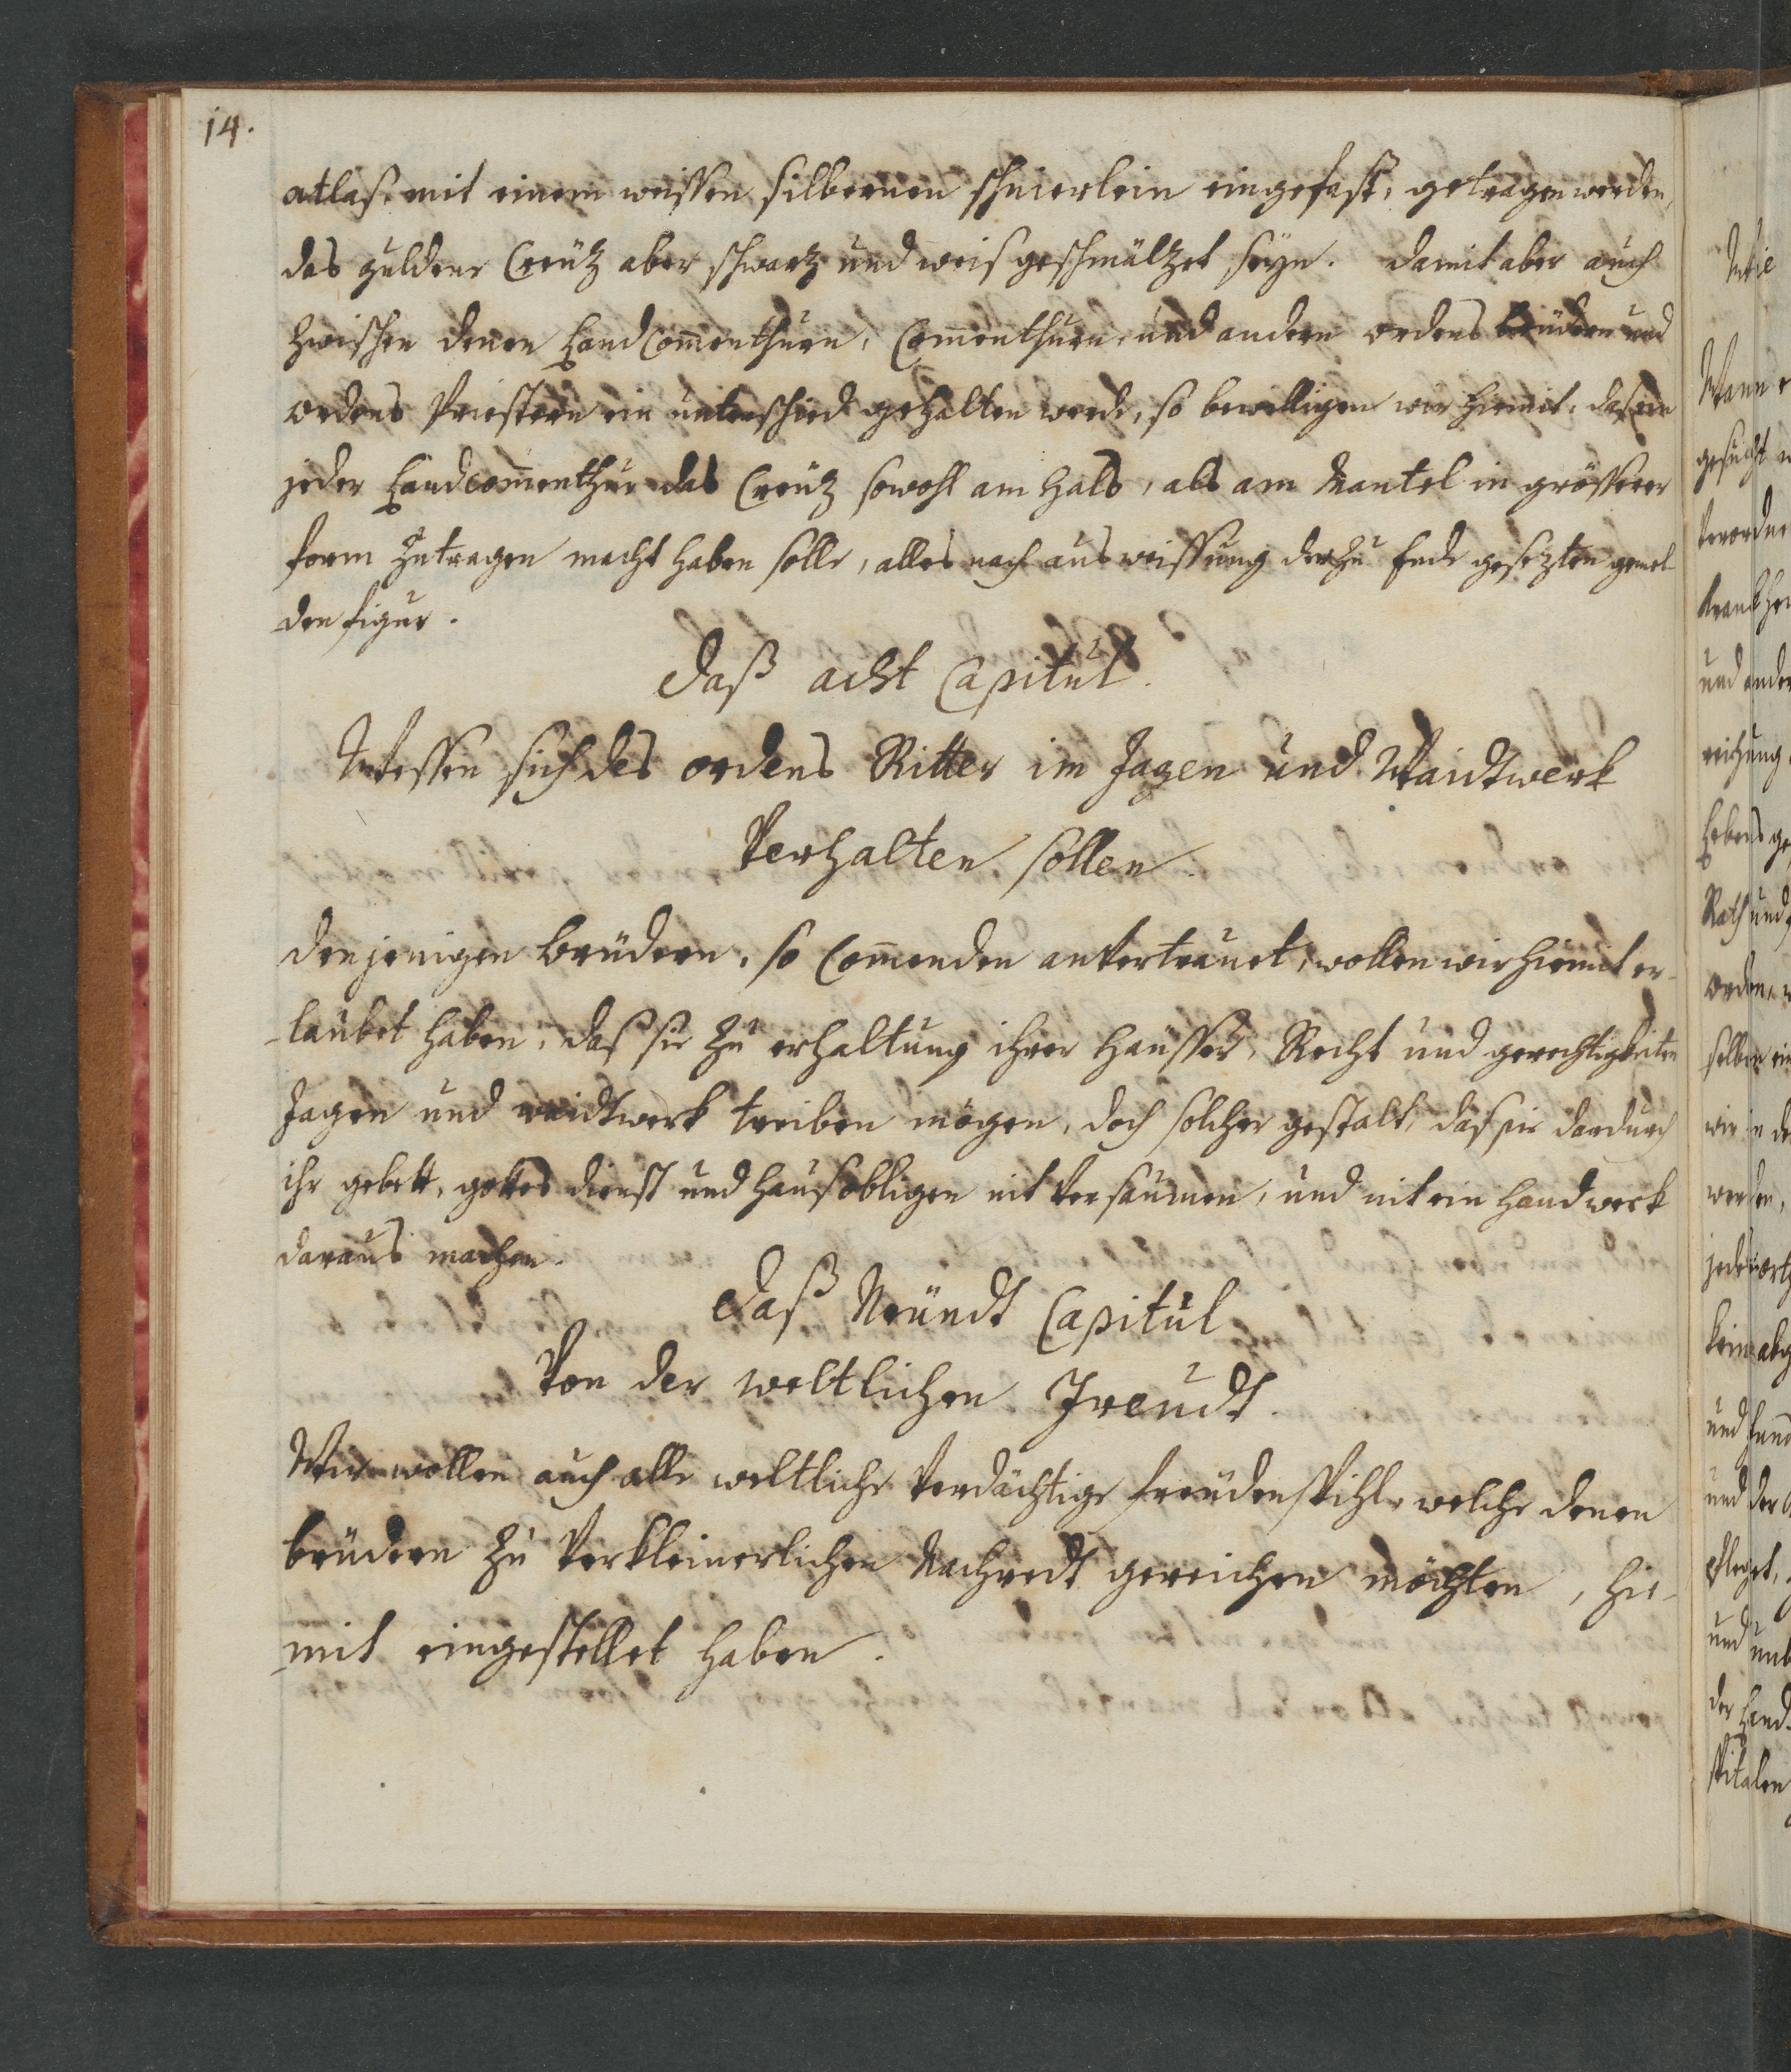 14.
atlaß, mit einem weissen silbernen schnierlein eingefast, getragen werden,
das guldene Creütz aber schwartz und weis geschmältzet seyn. damit aber auch
zwischen denen Landcom̄enthurn, Com̄enthurn, und andern ordens brüdern und
ordens Priestern ein unterschied gehalten werde, so bewilligen wir hiemit, das ein
jeder Landcom̄enthur das Creütz sowohl am Hals, als am Mantel in grösserer
form zutragen macht haben solle, alles nach ausweissung der zu Ende gesezten gemel
den figur.
Daß acht Capitul.
Wessen sich des ordens Ritter im Jagen und Waidtwerk
Verhalten sollen.
denjenigen brüdern, so Com̄enden anvertrauet, wollen wir hiemit er-
-laubet haben, das sie zu erhaltung ihrer Häusser, Recht und gerechtigkeiten
Jagen und waidtwerk treiben mögen, doch solcher gestalt, das sie dardurch
ihr gebett, gottes dienst und Hausobligen nit versäumen, und nit ein Handwerk
daraus machen.
Daß Neündt Capitul
Von der weltlichen Freudt.
Wir wollen auch alle weltliche Verdächtige freüdenspihl, welche denen
brüdern zu Verkleinerlichen Nachredt gereichen möchten, hie-
mit eingestellet haben.